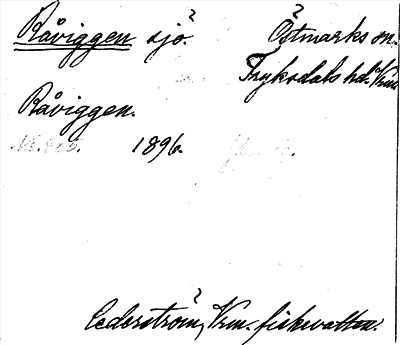 Råviggen sjö. Östmarks sn.
Frykodals hd. Vrm
Råviggen.
1896.
Cederström, Vrm. fiskevatten.